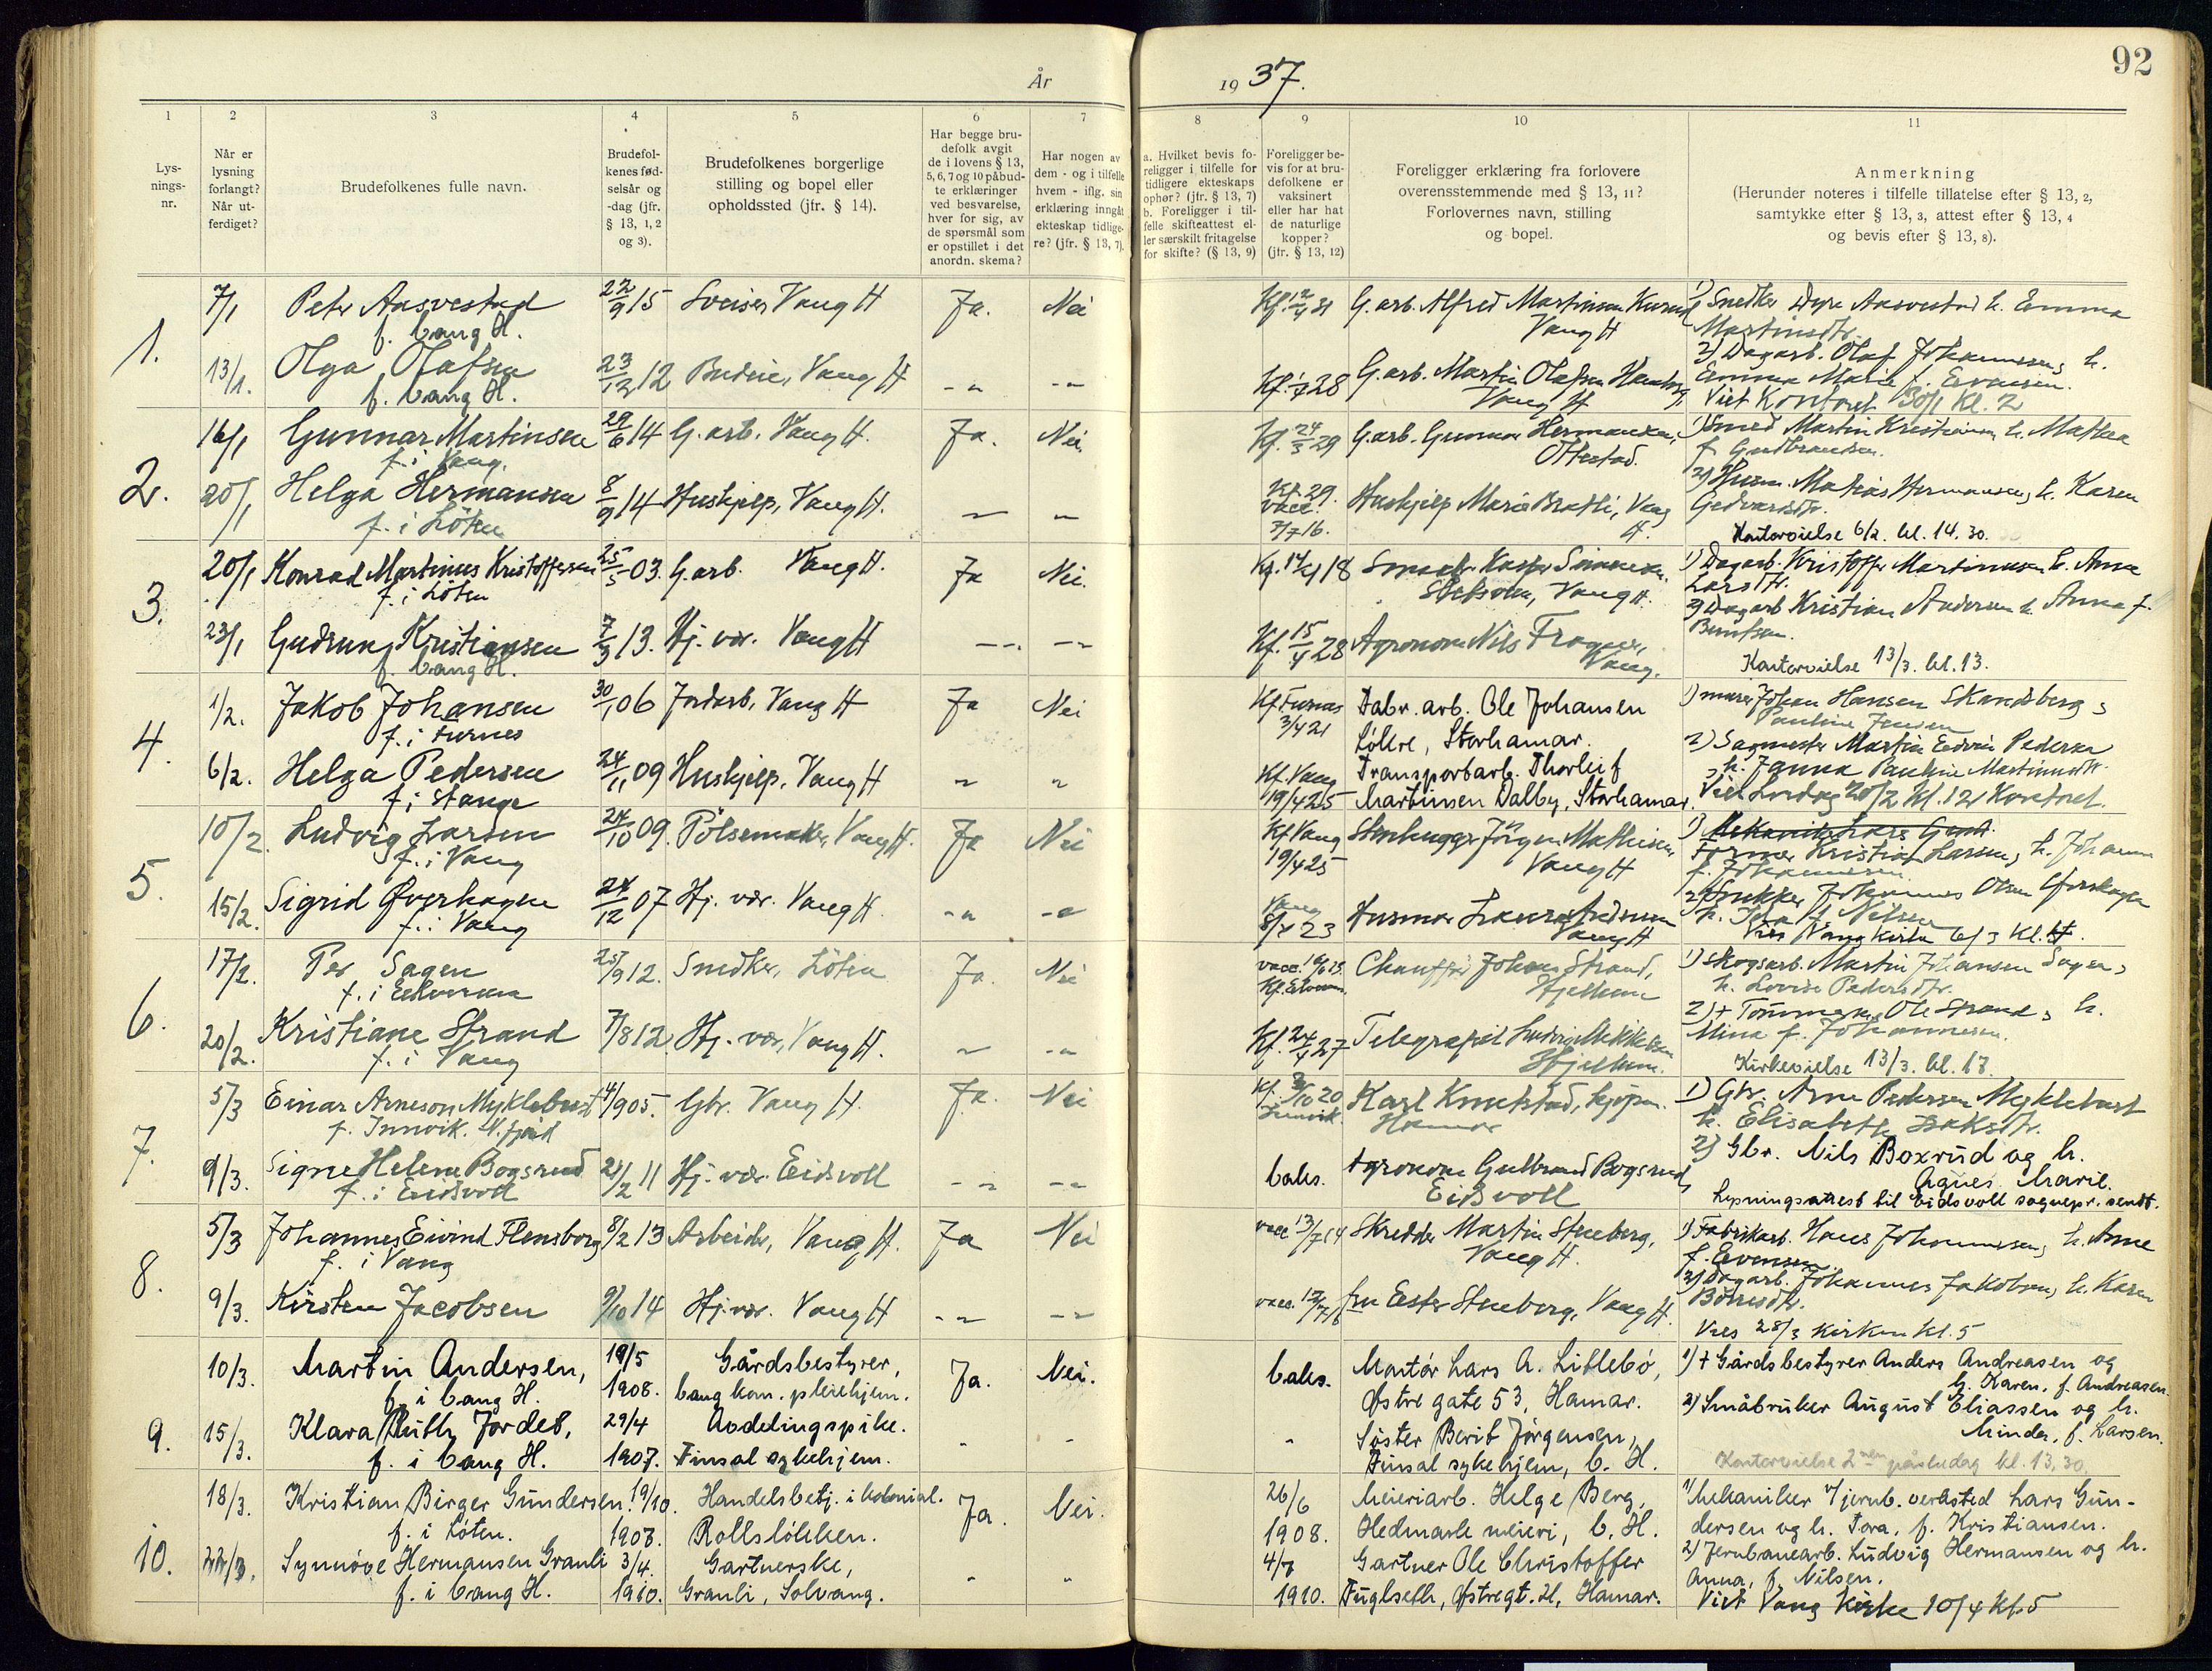 92
År
19 37.
1
2
3
4
5
6
7
8
9
10
11
Lys-
nings-
nr.
Når er
lysning
forlangt?
Når ut-
ferdiget?
Brudefolkenes fulle navn.
Brudefol-
kenes fød-
selsår og
-dag (jfr.
§ 13, 1,2
og 3).
Brudefolkenes borgerlige
stilling og bopel eller
opholdssted (jfr. § 14).
Har begge bru-
defolk avgit
de i lovens § 13,
5, 6, 7 og 10 påbud-
te erklæringer
ved besvarelse,
hver for sig, av
de spørsmål som
er opstillet i det
anordn. skema?
Har nogen av
dem - og i tilfelle
hvem - iflg. sin
erklæring inngåt
ekteskap tidlige-
re? (jfr. § 13, 7).
a. Hvilket bevis fo-
religger i tilfelle for
tidligere ekteskaps
ophør? (jfr. § 13, 7)
b. Foreligger i til-
felle skifteattest el-
ler særskilt fritagelse
for skifte? (§ 13, 9)
Foreligger be-
vis for at bru-
defolkene er
vaksinert
eller har hat
de naturlige
kopper?
(jfr. § 13, 12)
Foreligger erklæring fra forlovere
overensstemmende med § 13, 11?
Forlovernes navn, stilling
og bopel.
Anmerkning
(Herunder noteres i tilfelle tillatelse efter § 13, 2,
samtykke efter § 13, 3, attest efter § 13, 4
og bevis efter § 13, 8).
1.
7/1 Peter Aasvestad 22/9 15 Sveiser Vang H Ja. Nei G.arb. Alfred Martinsen Vang H 1) Snedker Aasvestad h. Emma
f. Vang H. Martinsdtr.
13/1. Olga Olafsen 23/12 12 Budeie, Vang H -"- -"- Kf. 28 G.arb. Martin Olafsen Vang H 2) Dagarb. Olaf Johannessen, h.
f. Vang H. Emma Marie f. Evensen.
Viet Kontoret 30/1 kl. 2
2.
16/1 Gunnar Martinsen 29/6 14 G.arb. Vang H. Ja. Nei Kf. 24/3 29 G.arb. Gunnar Hermansen, Ottestad. 1) Smed Martin Kristiansen h. Mathea
f. i Vang. f. Gudbrandsen.
20/1 Helga Hermansen 8/9 14 Hushjelp, Vang H. Kf. 29. vacc. 7/7 16. Hushjelp Marie Bratli, Vang H. 2) Husm. Mathias Hermansen, h. Karen
f. i Löten
Kontorvielse 6/2. kl. 14.30.
3.
20/1 Konrad Martinus Kristoffersen 25/5 03. G.arb. Vang H. Ja Nei. Kf. 18 Vang H. 1) Dagarb. Kristoffer Martinussen h. Anna
f. i Löten Larsdtr.
23/1 Gudrun Kristiansen 7/3 13. Hj. vær. Vang H Kf. 15/4 28 Agronom Nils Frogner, Vang. 2) Dagarb Kristian Andersen h. Anna f.
f. Vang H. Berntsen.
Kontorvielse 13/3. kl. 13.
4.
1/2. Jakob Johansen 30/1 06 Jordarb. Vang H Ja Nei Kf. Furnes 3/4 21 Fabr. arb. Ole Johansen 1) murer Johan Hansen Skandsberg,
f. i Furnes Løkke, Storhamar. Pauline Jensen
6/2. Helga Pedersen 24/11 09 Hushjelp, Vang H " " Kf. Vang 19/4 25 Transportarb. Thorleif 2) Sagmester Martin Edvin Pedersen
f. i Stange Martinsen Dalby, Storhamar. h. Janna Pauline Martinusdtr.
Viet Lördag 20/2 Kl. 12 Kontoret.
5.
10/2. Ludvig Larsen 24/10 09. Pölsemaker, Vang H. Ja Nei Kf Vang 19/4 25 Stenhugger Jörgen Mathisen, Vang H 1) Mekaniker Lars Gund.
f. i Vang Former Kristian Larsen, h. Johanne
f. Johannessen
15/2. Sigrid Øverhagen 24/12 07 Hj. vær. Vang H. -"- -"- Vang 23 Husmor Vang H Johannes Olsen
f. i Vang f. Nilsen
Vies Vang kirke 6/3 kl.
6.
17/2. Per Sagen 25/9 12. Snedker, Löten Ja. Nei Chauffør Johan Strand, Hjellum 1) Skogsarb. Martin Johansen Sagen,
f. i Elverum h. Lovise Pedersdtr.
20/2. Kristiane Strand 7/8 12. Hj. vær, Vang H. Kf. 24/4 27 Telegrafist Ludvig Mikkelsen Hjellum. 2) + Tømmerm. Ole Strand, h.
f. i Vang Mina f. Johannesen.
Kirkevielse 13/3. kl. 17.
7.
5/3 Einar Arneson Myklebust 14/9 05. Gbr. Vang H. Ja. Nei Kf. 20 Innvik Karl Knutstad, kjöpm. Hamar 1) Gbr. Arne Pedersen Myklebust
f. Innvik. N. fjord h. Elisabeth Isaksdtr.
9/3. Signe Helene Bogsrud 21/2 11 Hj. vær. Eidsvoll -"- -"- vaks. Agronom Gulbrand Bogsrud, Eidsvoll 2) Gbr. Nils Boxrud og h.
f. i Eidsvoll Agnes Marie.
Lysningsattest til Eidsvoll sognepr. sendt.
8.
5/3 Johannes Eivind Flensborg 8/2 13 Arbeider, Vang H. Ja Nei vacc 13/7 14 Skredder Martin Steneberg, Vang H. 1) Fabrikarb. Hans Johannessen, h. Anne
f. i Vang f. Evensen.
9/3. Kirsten Jacobsen 9/10 14 Hj.vær. Vang H -"- -"- fru Ester Steneberg, Vang H. 2) Dagarb. Johannes Jakobsen, h. Karen
Vies 28/3 kirken kl. 5
9.
10/3. Martin Andersen, 19/5 1908. Gårdsbestyrer, Ja. Nei. vaks. Montör Lars A. Lillebö, 1) + Gårdsbestyrer Anders Andreasen og
f. i Vang H. Vang kom. pleiehjem. Østre gate 53, Hamar. h. Karen, f. Andreasen.
15/3. Klara Ruth Jordet, 29/4 1907. Avdelingspike. " " " Söster Berit Jörgensen, 2) Småbruker August Eliassen og h.
f. i Vang H. Finsal sykehjem. Finsal sykehjem, V. H. Minda, f. Larsen.
Kontorvielse 2nen påskedag kl. 13,30.
10.
18/3. Kristian Birger Gundersen. 19/10. 1907. Handelsbetj. i kolonial. Ja. Nei. 26/6 1908. Meieriarb. Helge Berg, 1) Mekaniker v/jernb. verksted Lars Gun-
f. i Löten. Rollsløkken. Hedmark meieri, V. H. dersen og h. Tora, f. Kristiansen.
22/3. Synnöve Hermansen Granli 3/4. 1910. Gartnerske, " " 4/7 1910. Gartner Ole Christoffer 2) Jernbanearb. Ludvig Hermansen og h.
f. i Vang H. Granli, Solvang. Fuglseth, Østregt. 21, Hamar. Anna, f. Nilsen.
Viet Vang Kirke 10/4 kl. 5